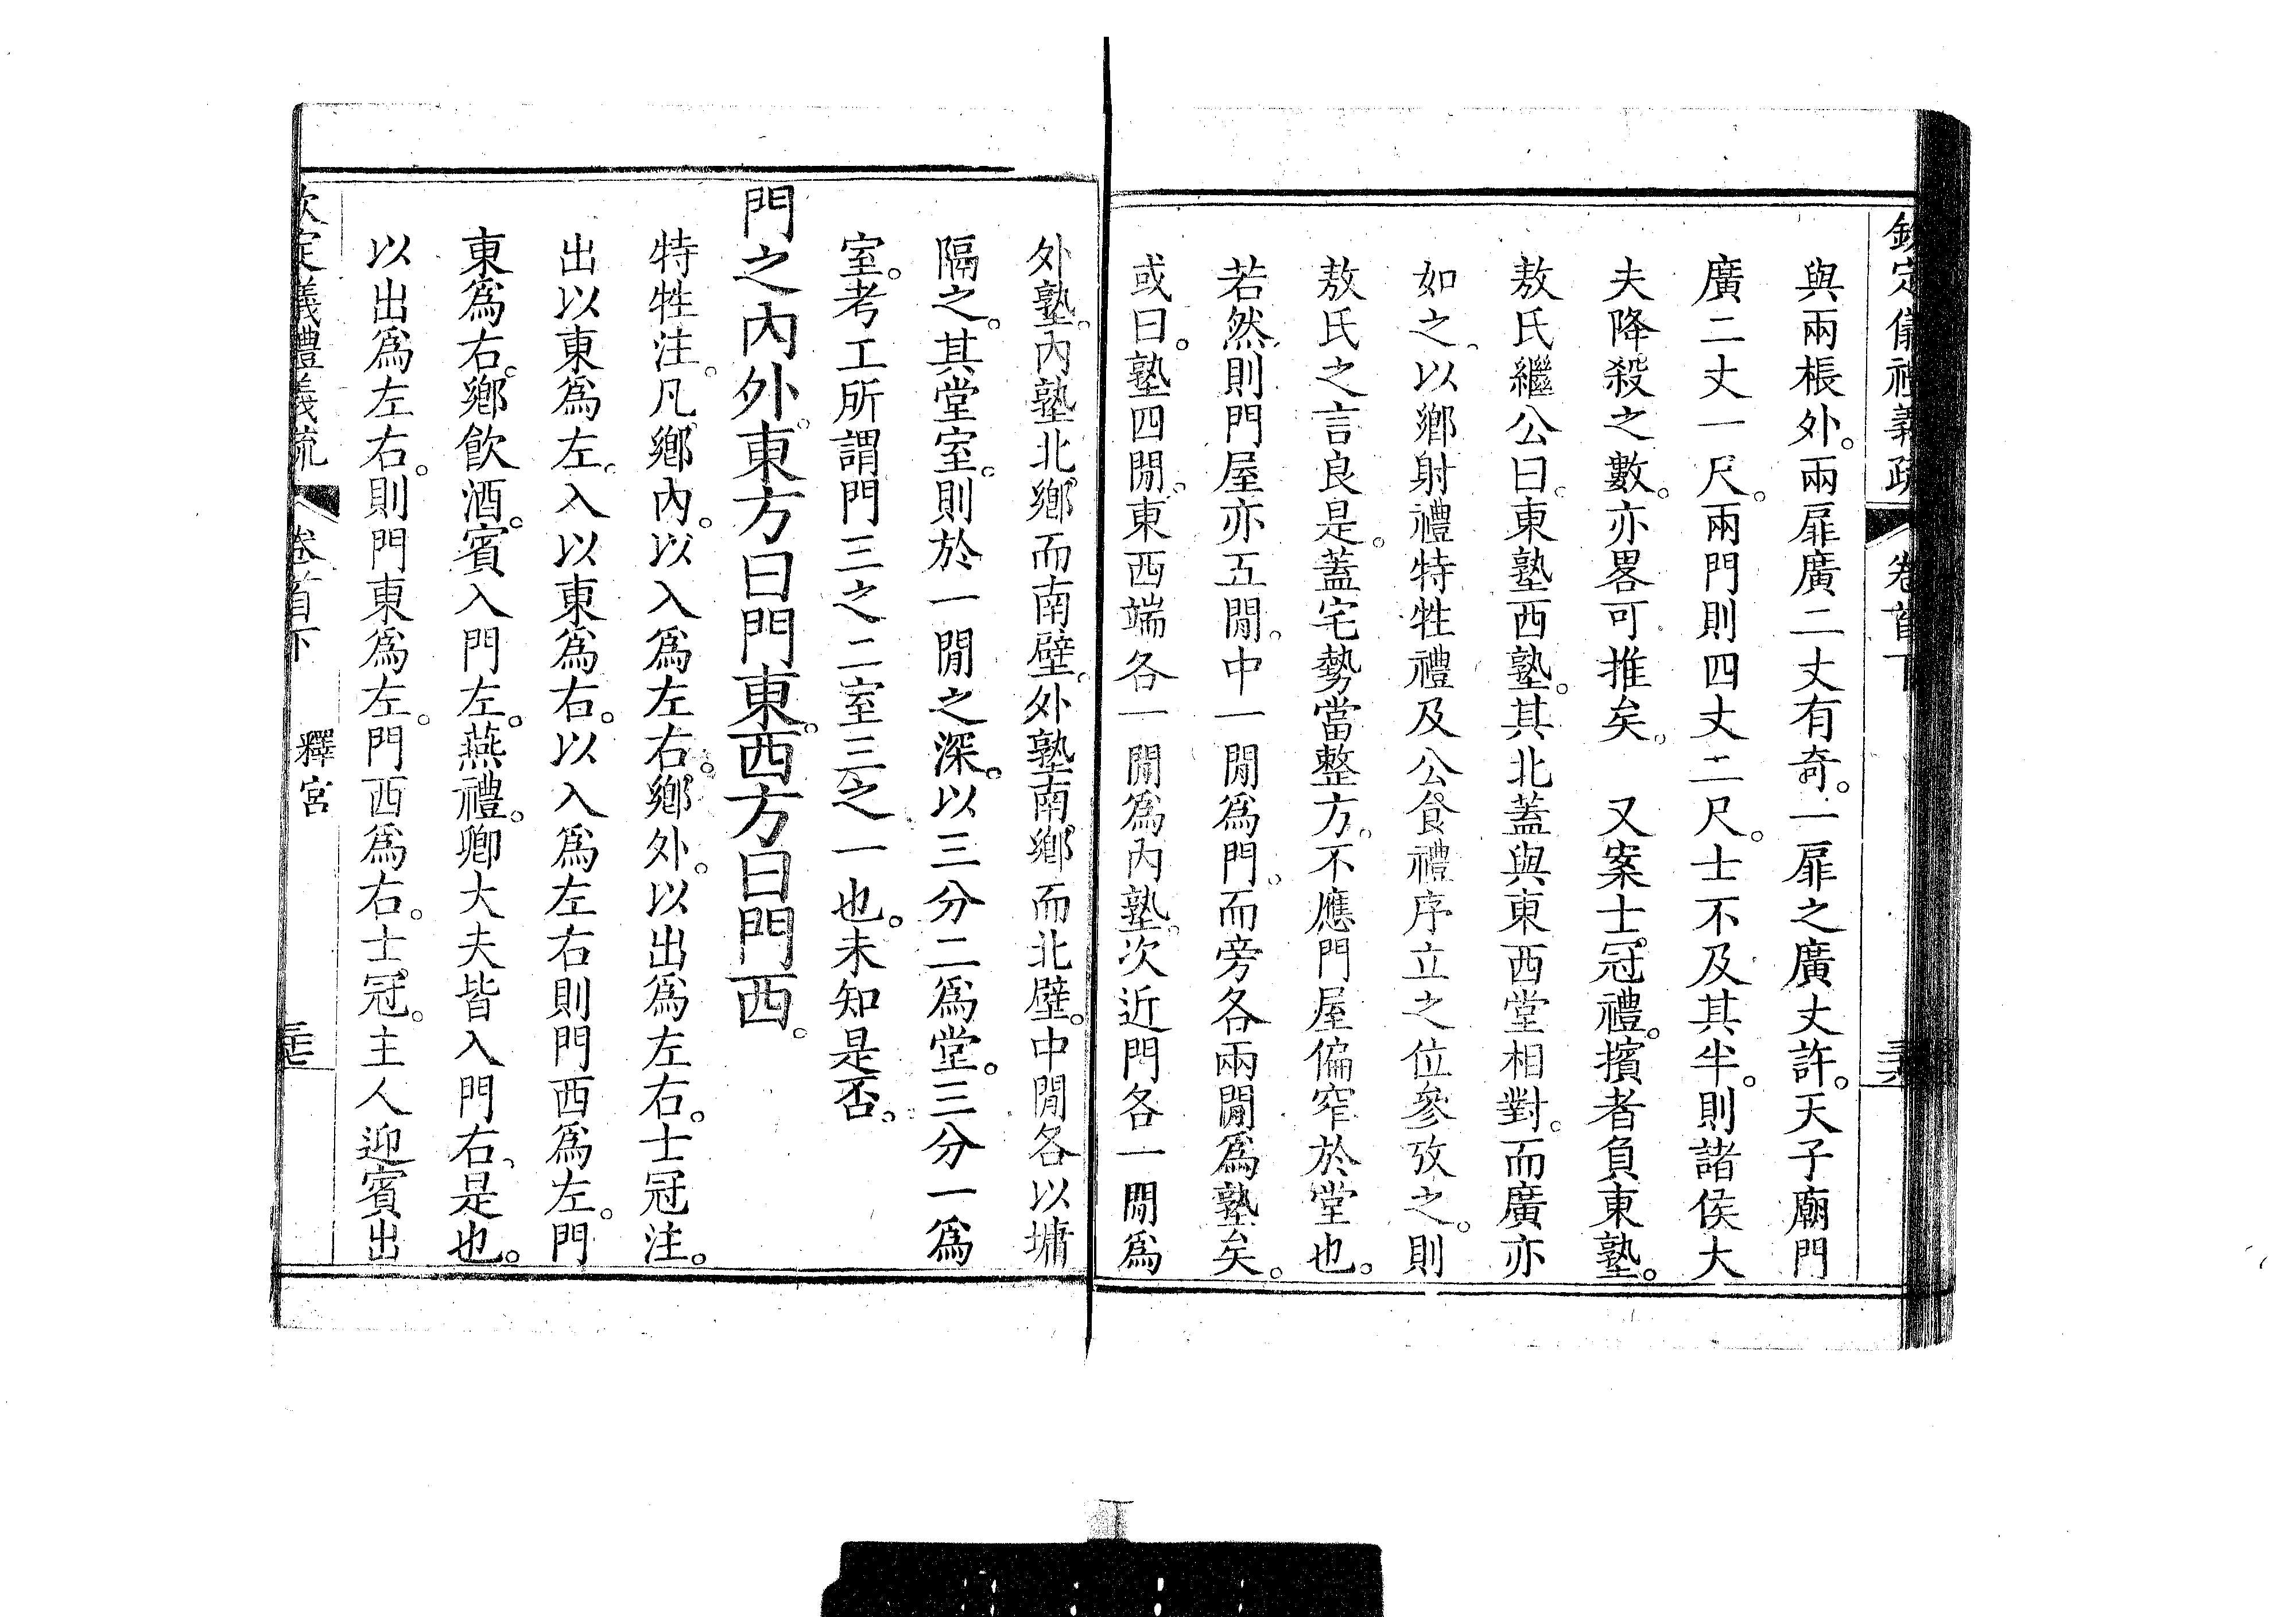 欽定儀禮義疏　卷首下
與兩棖外。兩扉廣二丈有奇。一扉之廣丈許。天子廟門
廣二丈一尺。兩門則四丈二尺。士不及其半。則諸侯大
夫降殺之數。亦畧可推矣。　又案士冠禮。擯者負東塾。
敖氏繼公曰。東塾西塾。其北蓋與東西堂相對。而廣亦
如之。以鄉射禮特牲禮及公食禮序立之位參攷之。則
敖氏之言良是。蓋宅勢當整方。不應門屋偏窄於堂也。
若然。則門屋亦五閒。中一閒為門。而旁各兩閒為塾矣。
或曰。塾四閒。東西端各一閒為內塾。次近門各一閒為
外塾。內塾北鄉而南壁。外塾南鄉而北壁。中閒各以墉
隔之。其堂室。則於一閒之深。以三分二為堂。三分一為
室。考工所謂門三之二室三之一也。未知是否。
門之內外。東方曰門東。西方曰門西。
特牲注。凡鄉內。以入為左右。鄉外。以出為左右。士冠注。
出以東為左。入以東為右。以入為左右則門西為左。門
東為右。鄉飲酒。賓入門左。燕禮。卿大夫皆入門右。是也。
以出為左右。則門東為左。門西為右。士冠。主人迎賓出
欽定儀禮義疏　卷首下　釋宮